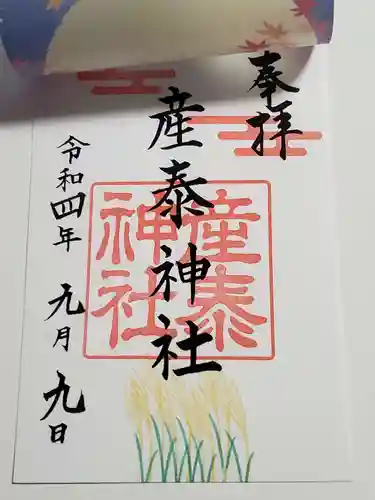 奉拝
産泰神社
産泰神社
令和四年 九月九日